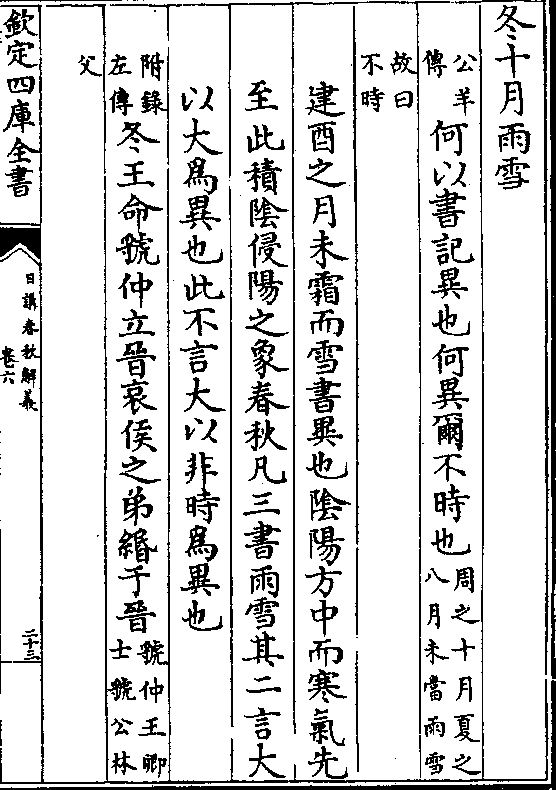 冬十月雨雪
公羊
傳
何以書記異也何異爾不時也
周之十月夏之
八月未當雨雪
故曰
不時
建酉之月未霜而雪書異也陰陽方中而寒氣先
至此積陰侵陽之象春秋凡三書雨雪其二言大
以大為異也此不言大以非時為異也
附錄
左傳
冬王命虢仲立晉哀侯之弟緡于晉
虢仲王卿
士虢公林
父
欽定四庫全書
日講春秋解義
卷六
二十三